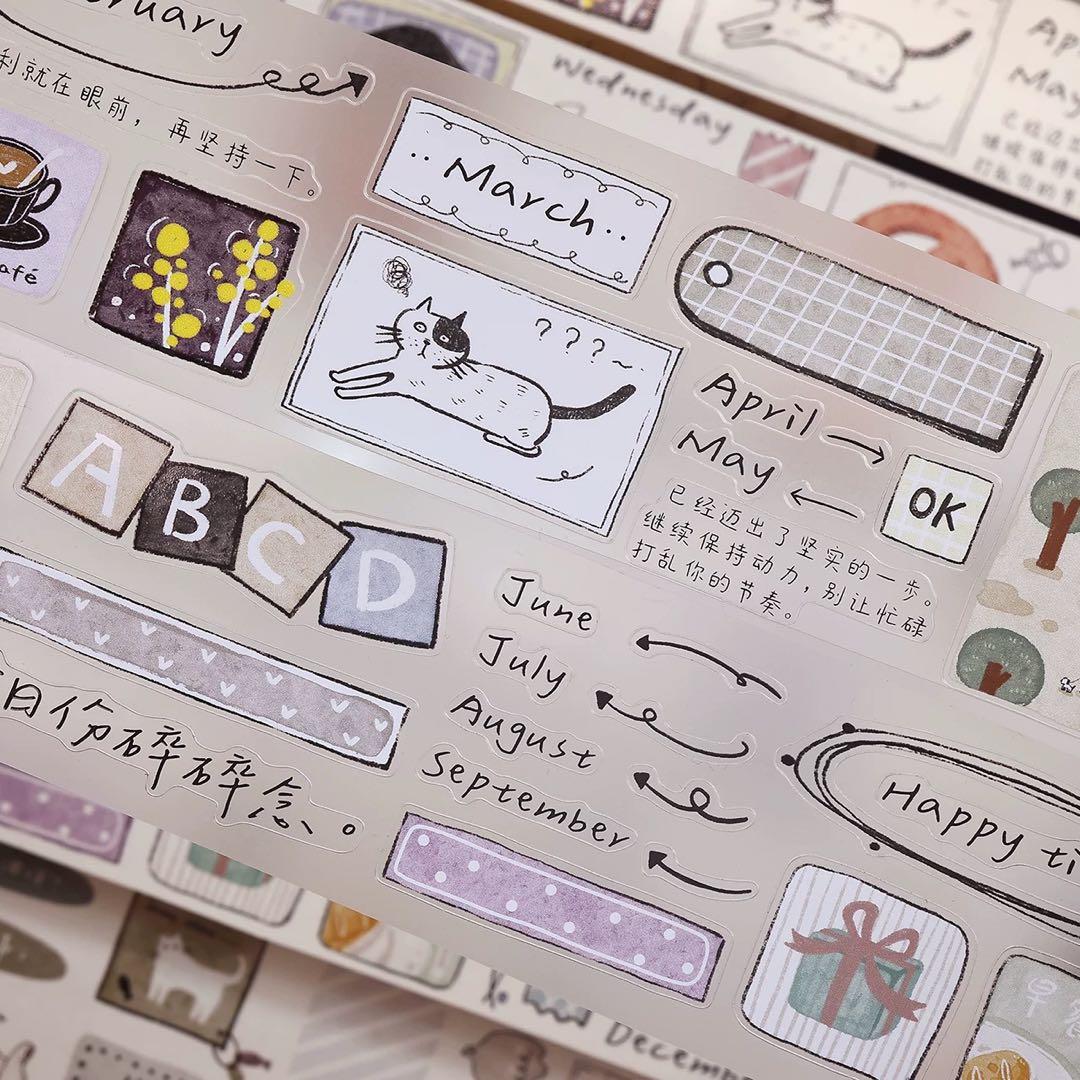 Wednesday
March
利就在眼前,再坚持一下。
afé
???~
April
May
OK
已经迈出了坚实的一步。
继续保持动力,别让忙碌
打乱你的节奏。
A B C D
June
July
August
September
日份碎碎念。
Happy ti
早餐
Decemb